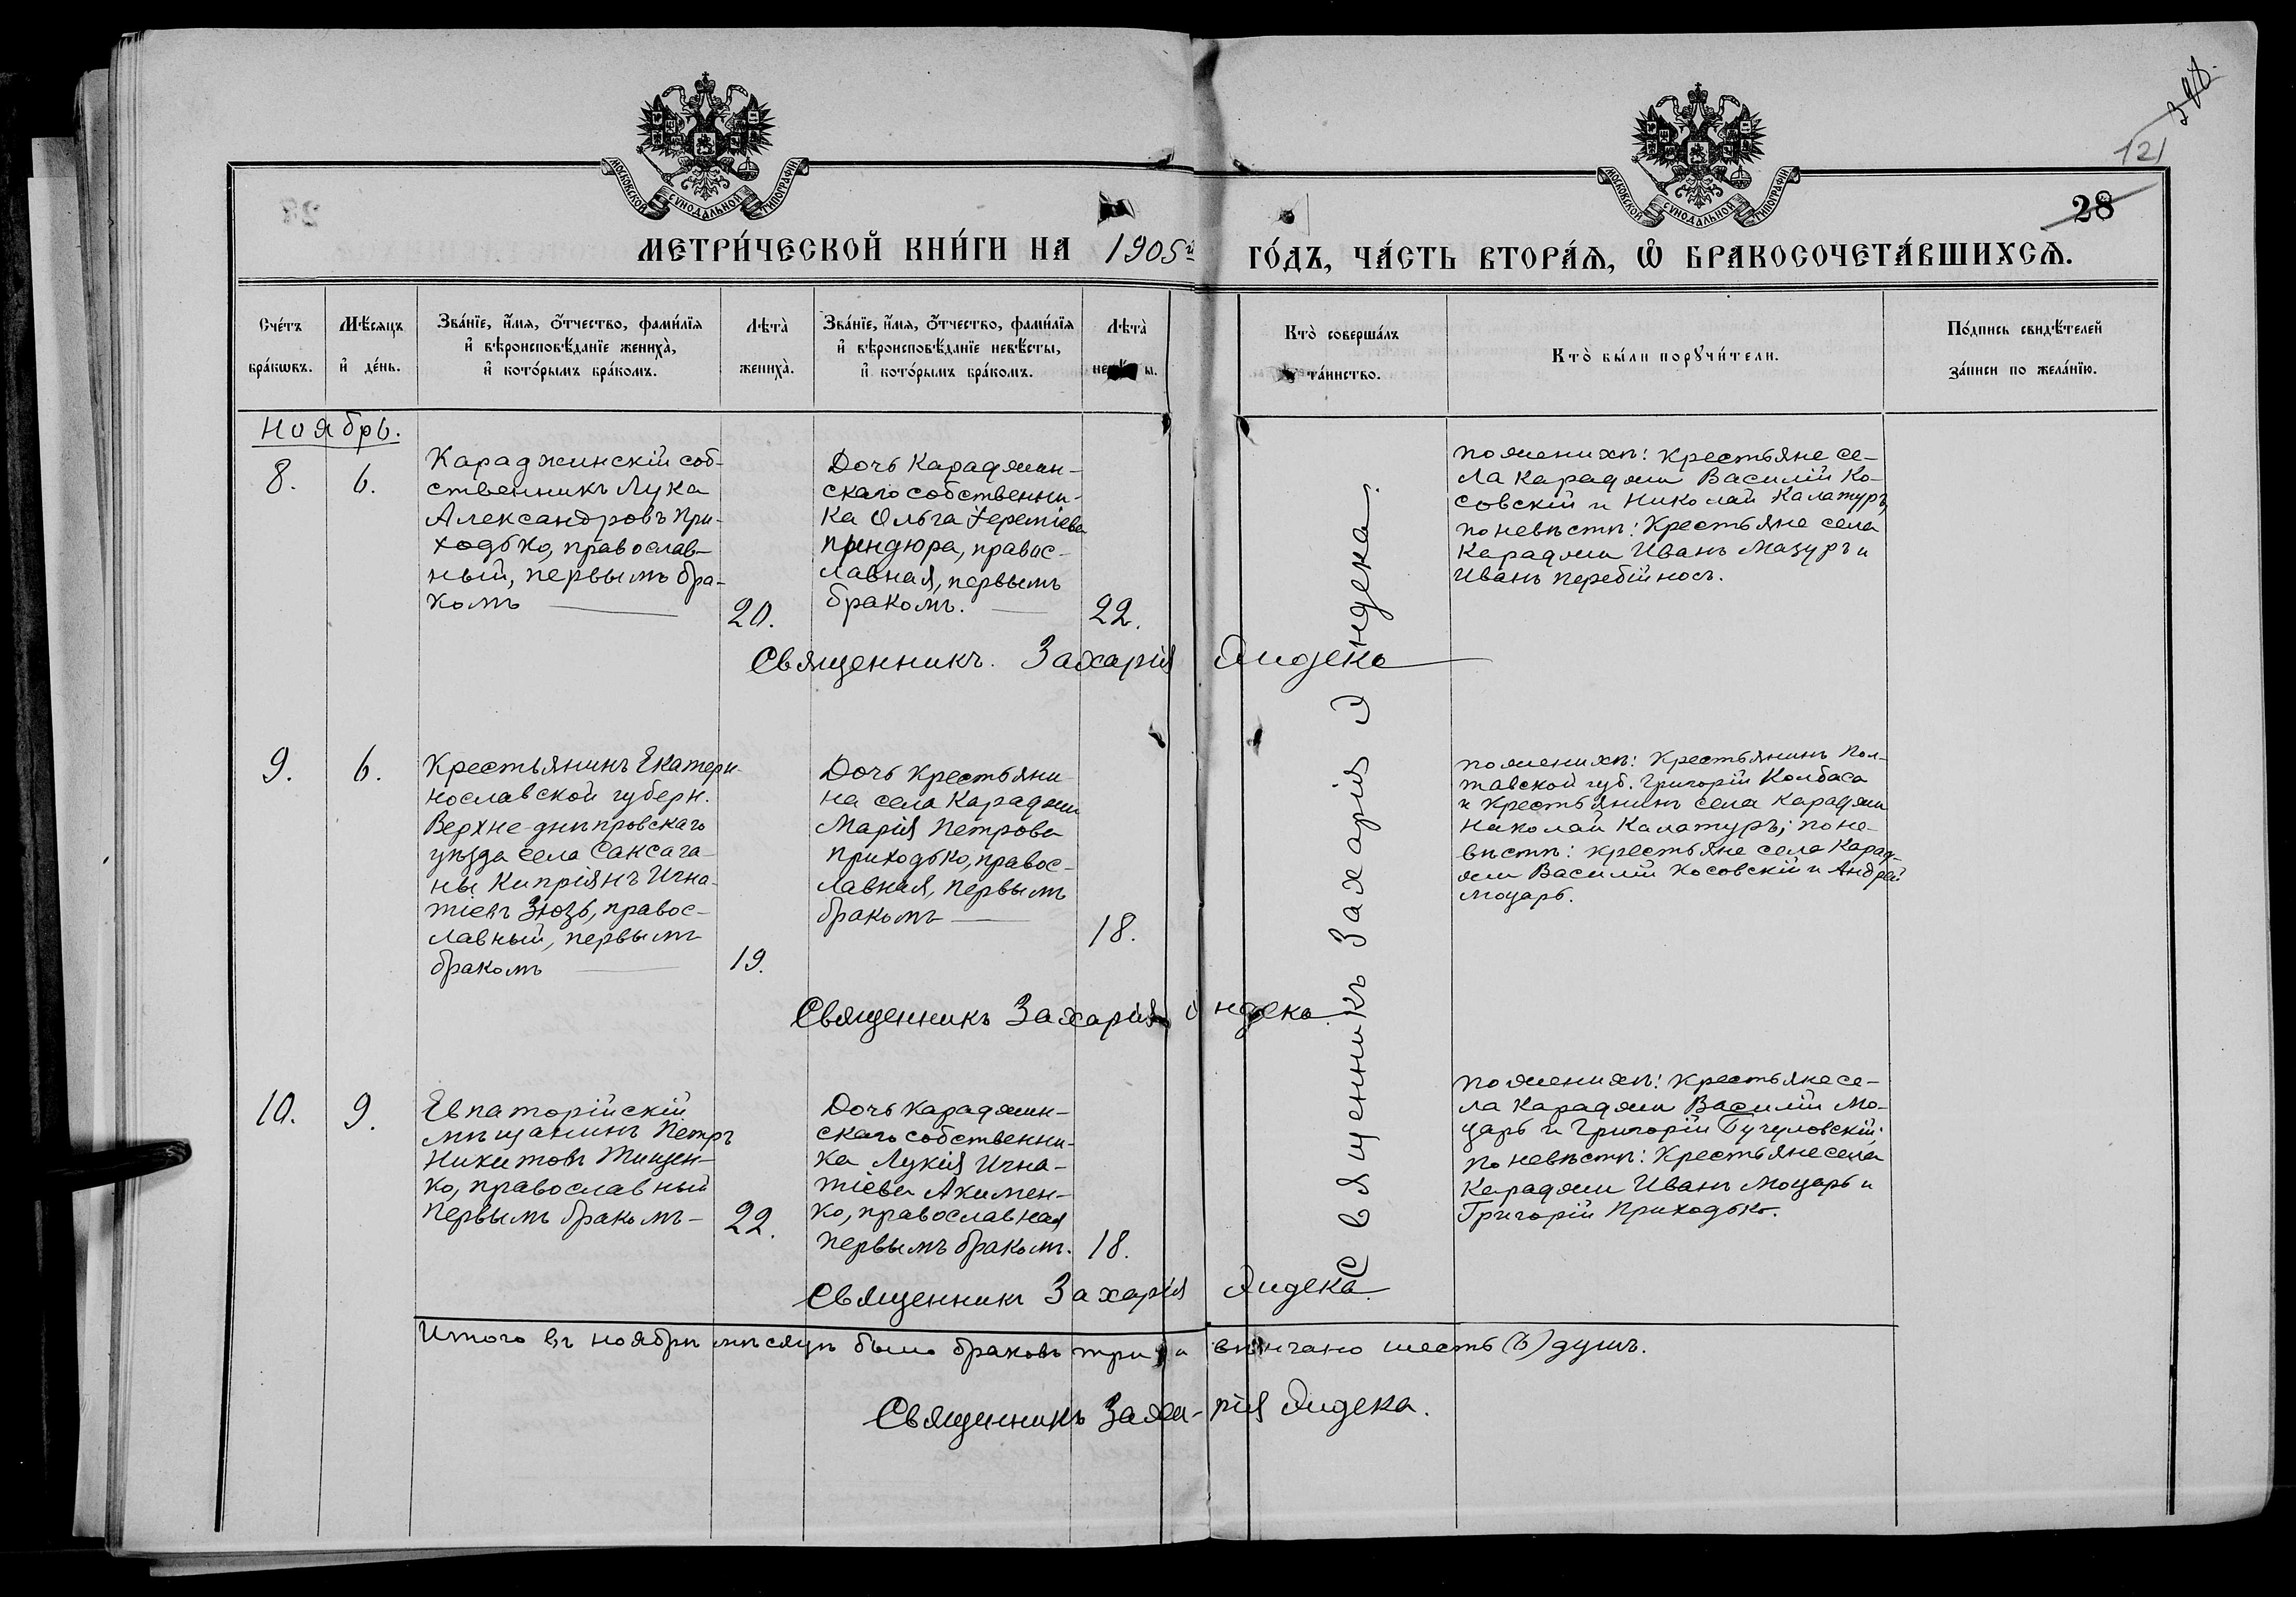 МОСКОВСКОЙ СѴНОДАЛЬНОЙ ТИПОГРАФІИ
МОСКОВСКОЙ СѴНОДАЛЬНОЙ ТИПОГРАФІИ
121
28
МЕТРИ́ЧЕСКОЙ КНИ́ГИ НА 1905й ГО́ДЪ, ЧА́СТЬ ВТОРА́Ѧ, Ѽ БРАКОСОЧЕТА́ВШИХСѦ.
Счéтъ
брáкѡвъ.
Мѣ́сяцъ
и҆ дéнь.
Звáнїе, и҆́мя, ѻ҆́тчество, фами́лїя
и҆ вѣроисповѣ́данїе женихà,
и҆ кото́рымъ брáкомъ.
Лѣтà
женихà.
Звáнїе, и҆́мя, ѻ҆́тчество, фами́лїя
и҆ вѣроисповѣ́данїе невѣ́сты,
и҆ кото́рымъ брáкомъ.
Лѣтà
не ы.
Ктò совершáлъ
тáинство.
Ктò бы́ли порꙋчи́тели.
Пóдпись свидѣ́телей
зáписи по желáнїю.
Ноябрь.
8.
6.
Караджинскій соб-
ственникъ Лука
Александровъ При-
ходько, православ-
ный, первымъ бра-
комъ
20.
Дочь Караджин-
скаго собственни-
ка Ольга Іереміева
Пиндюра, правос-
лавная, первымъ
бракомъ.
22.
по женихѣ: крестьяне се-
ла Караджи Василій Ко-
совскій и Николай Калатуръ,
по невѣстѣ: Крестьяне села
Караджи Иванъ Мазуръ и
Иванъ Перебійносъ.
Священникъ Захарія Индека
9.
6.
Крестьянинъ Екатери-
нославской губерн.
Верхне-днѣпровскаго
уѣзда села Саксага-
ны Кипріянъ Игна-
тіевъ Зюзь, правос-
лавный, первымъ
бракомъ
19.
Дочь крестьяни-
на села Караджи
Марія Петрова
Приходько, правос-
лавная, первымъ
бракомъ
18.
по женихѣ: Крестьянинъ Пол-
тавской губ. Григорій Колбаса
и крестьянинъ села Караджи
Николай Калатуръ; по не-
вѣстѣ: крестьяне села Карад-
жи Василій Косовскій и Андрей
Моцарь.
Священникъ Захарія Индека.
10.
9.
Евпаторійскій
мѣщанинъ Петръ
Никитовъ Тищен-
ко, православный
первымъ бракомъ-
22.
Дочь Караджин-
скаго собственни-
ка Лукія Игна-
тіева Акимен-
ко, православная
первымъ бракомъ.
18.
по женихѣ: крестьяне се-
ла Караджи Василій Мо-
царь и Григорій Гучуловскій;
по невѣстѣ: Крестьяне села
Караджи Иванъ Моцарь и
Григорій Приходько.
Священникъ Захарія Индека.
Священникъ Захарія Индека.
Итого въ ноябрѣ мѣсяцѣ было браковъ три и вѣнчано шесть (6) душъ.
Священникъ Заха-рія Индека.